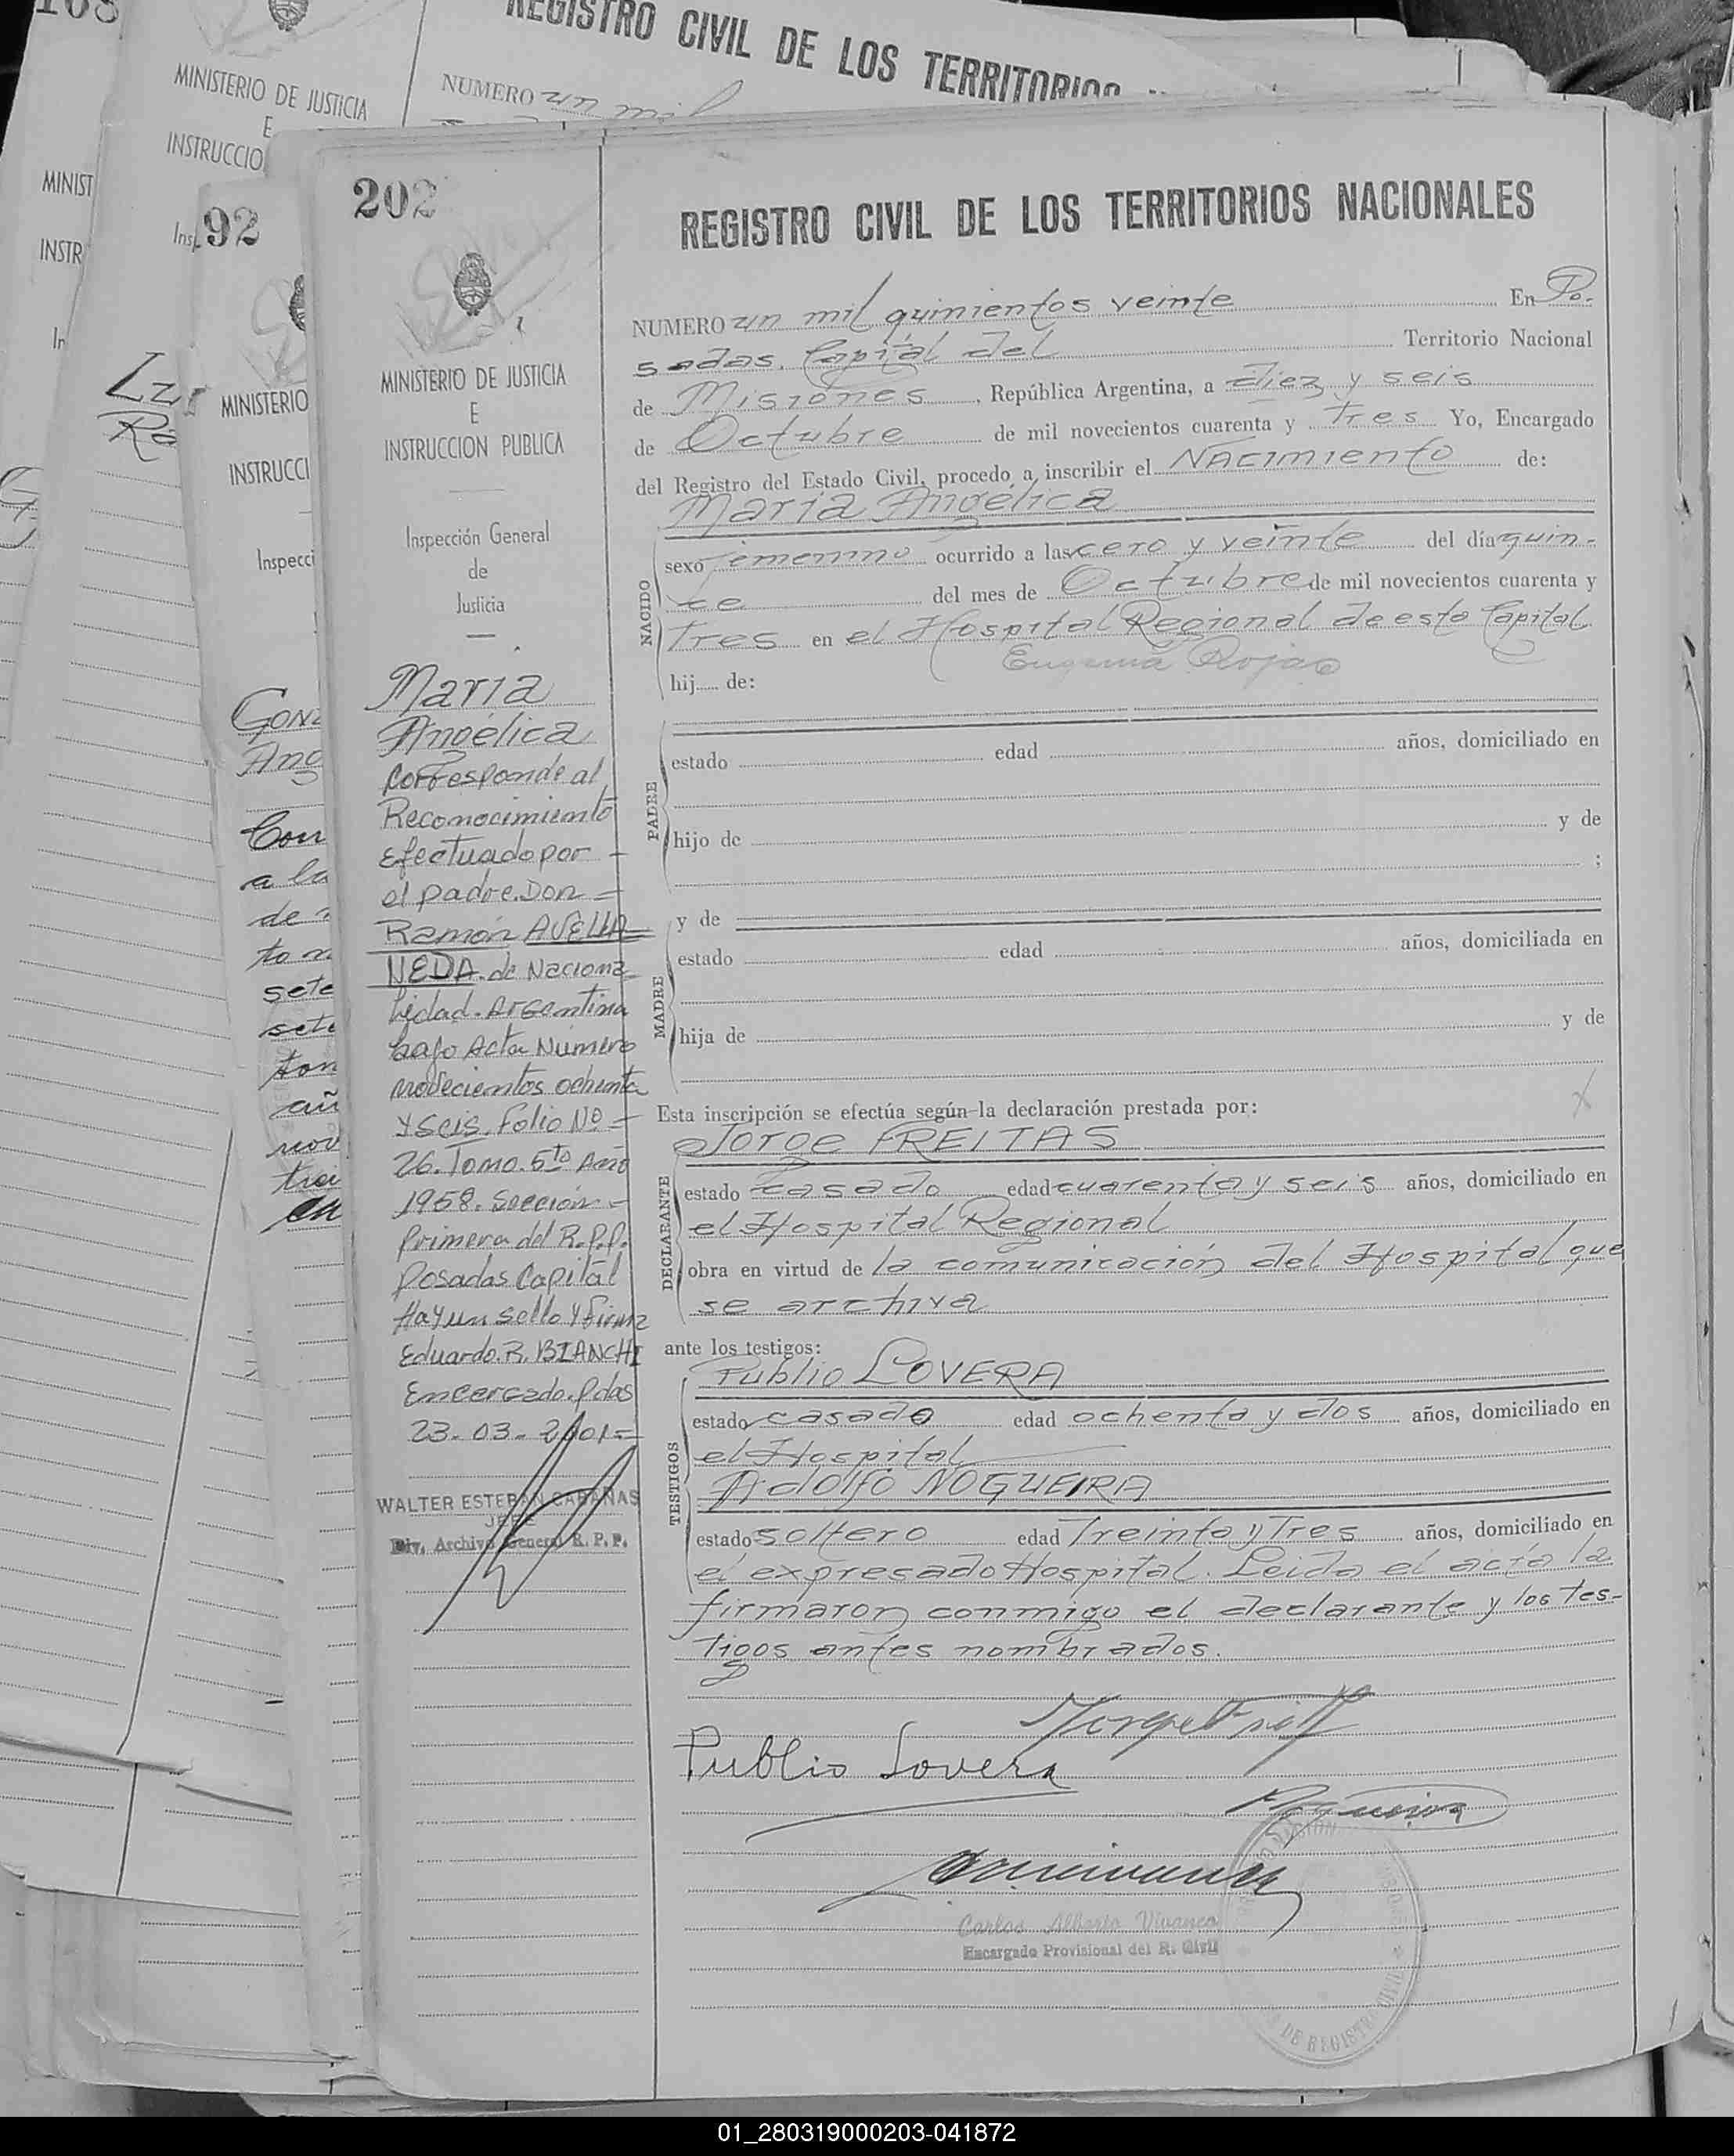 REGISTRO CIVIL DE LOS TERRITORIOS
MINISTERIO DE JUSTICIA
E
INSTRUCCIO
NUMERO un mil
MINIST
INSTR
92
MINISTERIO
INSTRUCCI
Inspecci
202
MINISTERIO DE JUSTICIA
E
INSTRUCCION PUBLICA
Inspección General
de
Justicia
María
Angélica
Corresponde al
Reconocimiento
Efectuado por
el padre. Don =
Ramón AVELLA
NEDA. de Naciona
lidad. Argentina
bajo Acta Número
novecientos ochenta
y seis. Folio Nº =
26. Tomo. 5to Año
1958. Sección =
Primera del R.P.P.
Posadas Capital
Hay un sello y firma
Eduardo. R. BIANCHI
Encargado. Pdas
23-03-2001=
WALTER ESTEBAN CABAÑAS
JEFE
Div. Archivo General R. P. P.
REGISTRO CIVIL DE LOS TERRITORIOS NACIONALES
NUMERO un mil quinientos veinte En Po-
sadas. Capital del Territorio Nacional
de Misiones, República Argentina, a diez y seis
de Octubre de mil novecientos cuarenta y Tres Yo, Encargado
del Registro del Estado Civil, procedo a inscribir el NAcimiento de:
María Angélica
NACIDO
sexo femenino ocurrido a las cero y veinte del día quin-
ce del mes de Octubre de mil novecientos cuarenta y
Tres en el Hospital Regional de esta Capital
Eugenia Rojas
hij de:
PADRE
estado edad años, domiciliado en
hijo de y de
;
MADRE
y de
estado edad años, domiciliada en
hija de y de
Esta inscripción se efectúa según la declaración prestada por:
Jorge FREITAS
DECLARANTE
estado casado edad cuarenta y seis años, domiciliado en
el Hospital Regional
obra en virtud de la comunicación del Hospital que
se archiva
ante los testigos:
Publio LOVERA
TESTIGOS
estado casado edad ochenta y dos años, domiciliado en
el Hospital
Adolfo NOGUEIRA
estado soltero edad Treinta y Tres años, domiciliado en
el expresado Hospital. Leida el acta la
firmaron conmigo el declarante y los tes-
tigos antes nombrados.
Publio Lovera
Carlos Alberto Vivanco
Encargado Provisional del R. Civil
01_280319000203-041872